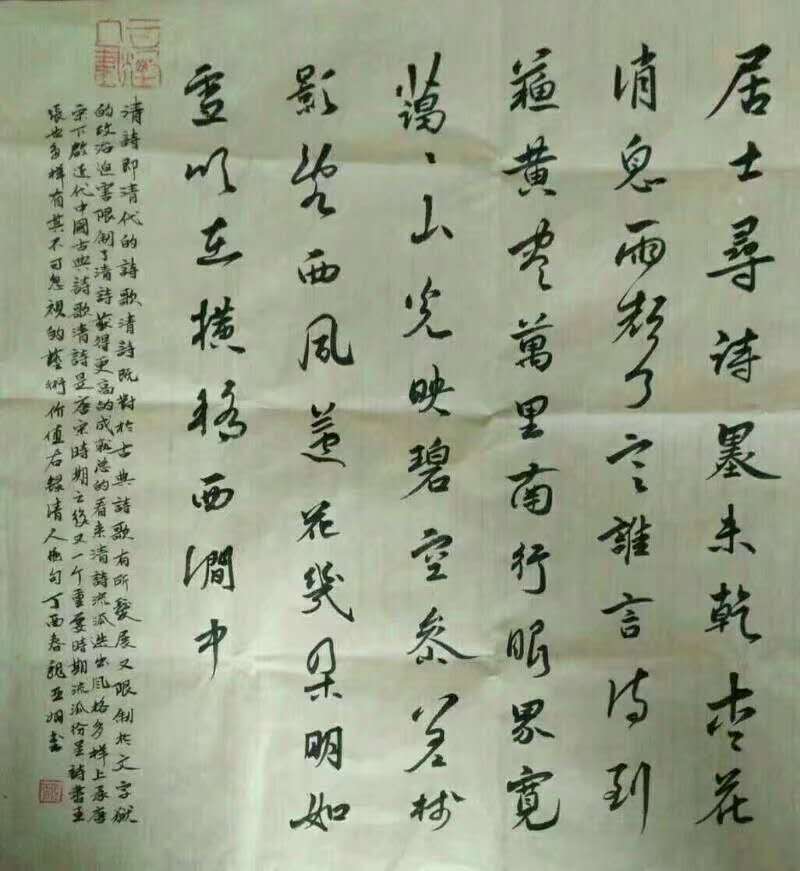 居士尋詩墨未乾杏花
消息雨聲了之誰言诗到
蘓黄盡萬里南行眼界寬
蕩〻山光映碧空参差樹
影襍西風蓮花幾朵明如
雪似在橫橋西澗中
清詩即清代的詩歌清詩既對於古典詩歌有所發展又限制於文字獄
的政治迫害限制了清詩获得更高的成就总的看来清詩流派迭出风格多样上承唐
宋下啟近代中國古典詩歌清詩是唐宋時期之後又一个重要時期流派纷呈詩書主
張也多样有其不可忽視的藝術价值右錄清人绝句丁酉春